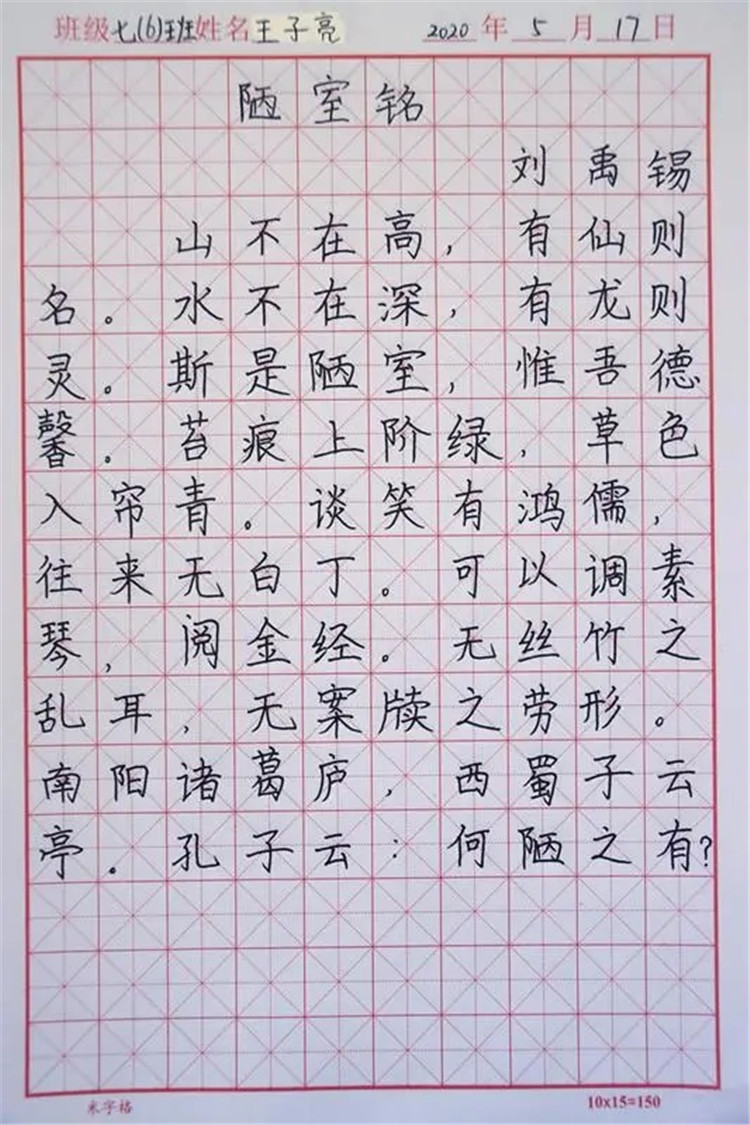 班级七(6)班姓名王子亮 2020年5月17日
陋室铭
刘禹锡
山不在高，有仙则
名。水不在深，有龙则
灵。斯是陋室，惟吾德
馨。苔痕上阶绿，草色
入帘青。谈笑有鸿儒，
往来无白丁。可以调素
琴，阅金经。无丝竹之
乱耳，无案牍之劳形。
南阳诸葛庐，西蜀子云
亭。孔子云：何陋之有?
米字格 10x15=150